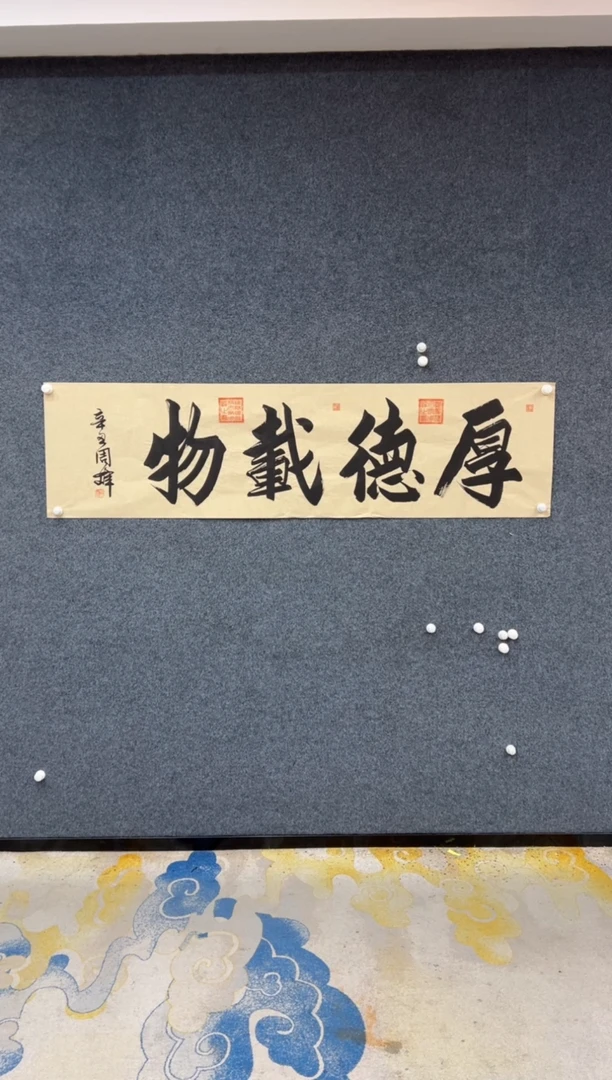 厚德載物
辛丑周輝